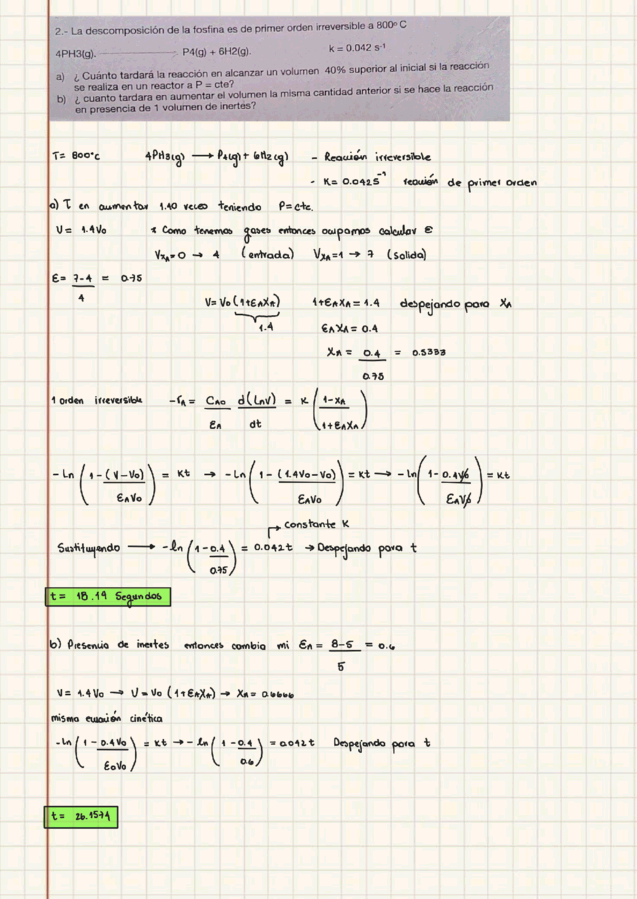 2.- La descomposición de la fosfina es de primer orden irreversible a 800º C
4PH3(g). → P4(g) + 6H2(g). k = 0.042 s⁻¹
a) ¿ Cuánto tardará la reacción en alcanzar un volumen 40% superior al inicial si la reacción
se realiza en un reactor a P = cte?
b) ¿ cuanto tardara en aumentar el volumen la misma cantidad anterior si se hace la reacción
en presencia de 1 volumen de inertes?
T= 800°c 4PH3(g) → P4(g) + 6H2(g) - Reacción irreversible
- K= 0.042s⁻¹ reacción de primer orden
a) T en aumentar 1.40 veces teniendo P=cte.
V= 1.4V0 * Como tenemos gases entonces ocupamos calcular ε
V_XA=0 → 4 (entrada) V_XA=1 → 7 (salida)
ε= (7-4)/4 = 0.75
V= V0 (1+εAXA) 1+εAXA = 1.4 despejando para XA
1.4 εAXA = 0.4
XA = 0.4/0.75 = 0.5333
1 orden irreversible -rA = CA0/εA d(LnV)/dt = K ((1-XA)/(1+εAXA))
-Ln (1-(V-V0)/εAV0) = Kt → -Ln (1-(1.4V0-V0)/εAV0) = Kt → -Ln (1-0.4V0/εAV0) = Kt
constante K
Sustituyendo → -ln (1-0.4/0.75) = 0.042t → Despejando para t
t= 18.19 Segundos
b) Presencia de inertes entonces cambia mi εA = (8-5)/5 = 0.6
V= 1.4V0 → V= V0 (1+εAXA) → XA= 0.6666
misma ecuación cinética
-Ln (1-0.4V0/ε0V0) = Kt → -Ln (1-0.4/0.6) = 0.042t Despejando para t
t= 26.1574